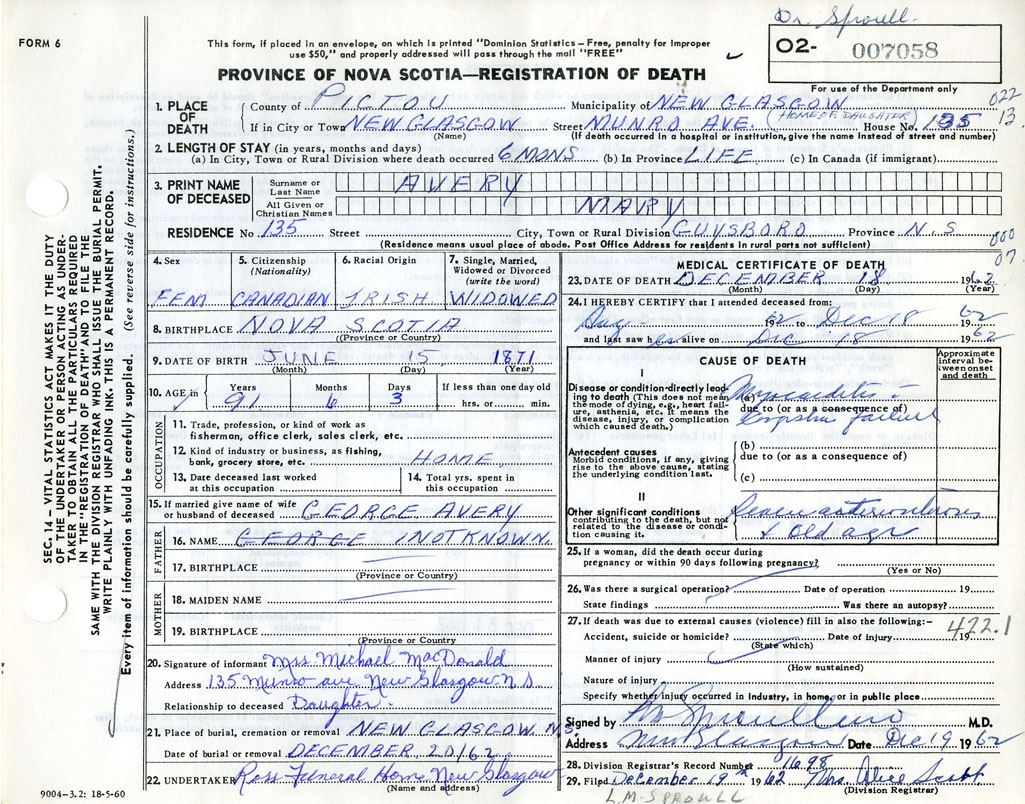 Dr. Sproull
FORM 6
This form, if placed in an envelope, on which is printed "Dominion Statistics – Free, penalty for improper
use $50," and properly addressed will pass through the mail "FREE"
O2- 007058
PROVINCE OF NOVA SCOTIA—REGISTRATION OF DEATH
For use of the Department only
1. PLACE OF DEATH
County of PICTOU Municipality of NEW GLASGOW 022
If in City or Town NEW GLASGOW Street MUNRO AVE. (HOME OF DAUGHTER) House No. 135 13
(Name) (If death occurred in a hospital or institution, give the name instead of street number)
2. LENGTH OF STAY (in years, months and days)
(a) In City, Town or Rural Division where death occurred 6 MONS (b) In Province LIFE (c) In Canada (if immigrant)
3. PRINT NAME OF DECEASED
Surname or Last Name AVERY
All Given or Christian Names MARY
RESIDENCE No. 135 Street City, Town or Rural Division GUYSBORO Province N.S
(Residence means usual place of abode. Post Office Address for residents in rural parts not sufficient)
000
07
4. Sex FEM
5. Citizenship (Nationality) CANADIAN
6. Racial Origin IRISH
7. Single, Married, Widowed or Divorced (write the word) WIDOWED
8. BIRTHPLACE NOVA SCOTIA
(Province or Country)
9. DATE OF BIRTH JUNE 15 1871
(Month) (Day) (Year)
10. AGE in Years 91 Months 6 Days 3 If less than one day old hrs. or min.
OCCUPATION
11. Trade, profession, or kind of work as
fisherman, office clerk, sales clerk, etc.
12. Kind of industry or business, as fishing,
bank, grocery store, etc. HOME
13. Date deceased last worked at this occupation
14. Total yrs. spent in this occupation
15. If married give name of wife
or husband of deceased GEORGE AVERY
FATHER
16. NAME GEORGE (NOT KNOWN.
17. BIRTHPLACE
(Province or Country)
MOTHER
18. MAIDEN NAME
19. BIRTHPLACE
(Province or Country
20. Signature of informant Mrs Michael MacDonald
Address 135 Munro ave New Glasgow N S
Relationship to deceased Daughter.
21. Place of burial, cremation or removal NEW GLASGOW N S.
Date of burial or removal DECEMBER 20/62
22. UNDERTAKER Ross Funeral Home New Glasgow
(Name and address)
9004–3.2: 18-5-60
MEDICAL CERTIFICATE OF DEATH
23. DATE OF DEATH DECEMBER 18 1962
(Month) (Day) (Year)
24. I HEREBY CERTIFY that I attended deceased from:
1962 to Dec 18 1962
and last saw alive on Dec 18 1962
CAUSE OF DEATH
Approximate interval between onset and death
I
Disease or condition directly leading to death (This does not mean the mode of dying, e.g., heart failure, asthenia, etc. It means the disease, injury, or complication which caused death.)
(a) Myocarditis
due to (or as a consequence of)
failure
Antecedent causes
Morbid conditions, if any, giving rise to the above cause, stating the underlying condition last.
(b)
due to (or as a consequence of)
(c)
II
Other significant conditions
contributing to the death, but not related to the disease or condition causing it.
+ Old age
25. If a woman, did the death occur during
pregnancy or within 90 days following pregnancy?
(Yes or No)
26. Was there a surgical operation? Date of operation 19
State findings Was there an autopsy?
27. If death was due to external causes (violence) fill in also the following:–
422.1
Accident, suicide or homicide? Date of injury 19
(State which)
Manner of injury
(How sustained)
Nature of injury
Specify whether injury occurred in industry, in home, or in public place
Signed by Sproull M.D.
Address New Glasgow Date Dec 19 1962
28. Division Registrar's Record Number 1698
29. Filed December 19th 1962 Mrs. Alice Scott
(Division Registrar)
L.M. SPROULL
SEC. 14 – VITAL STATISTICS ACT MAKES IT THE DUTY
OF THE UNDERTAKER OR PERSON ACTING AS UNDERTAKER
TO OBTAIN ALL THE PARTICULARS REQUIRED
IN THE "REGISTRATION OF DEATH" AND TO FILE THE
SAME WITH THE DIVISION REGISTRAR WHO SHALL ISSUE THE BURIAL PERMIT.
WRITE PLAINLY WITH UNFADING INK. THIS IS A PERMANENT RECORD.
Every item of information should be carefully supplied. (See reverse side for instructions.)